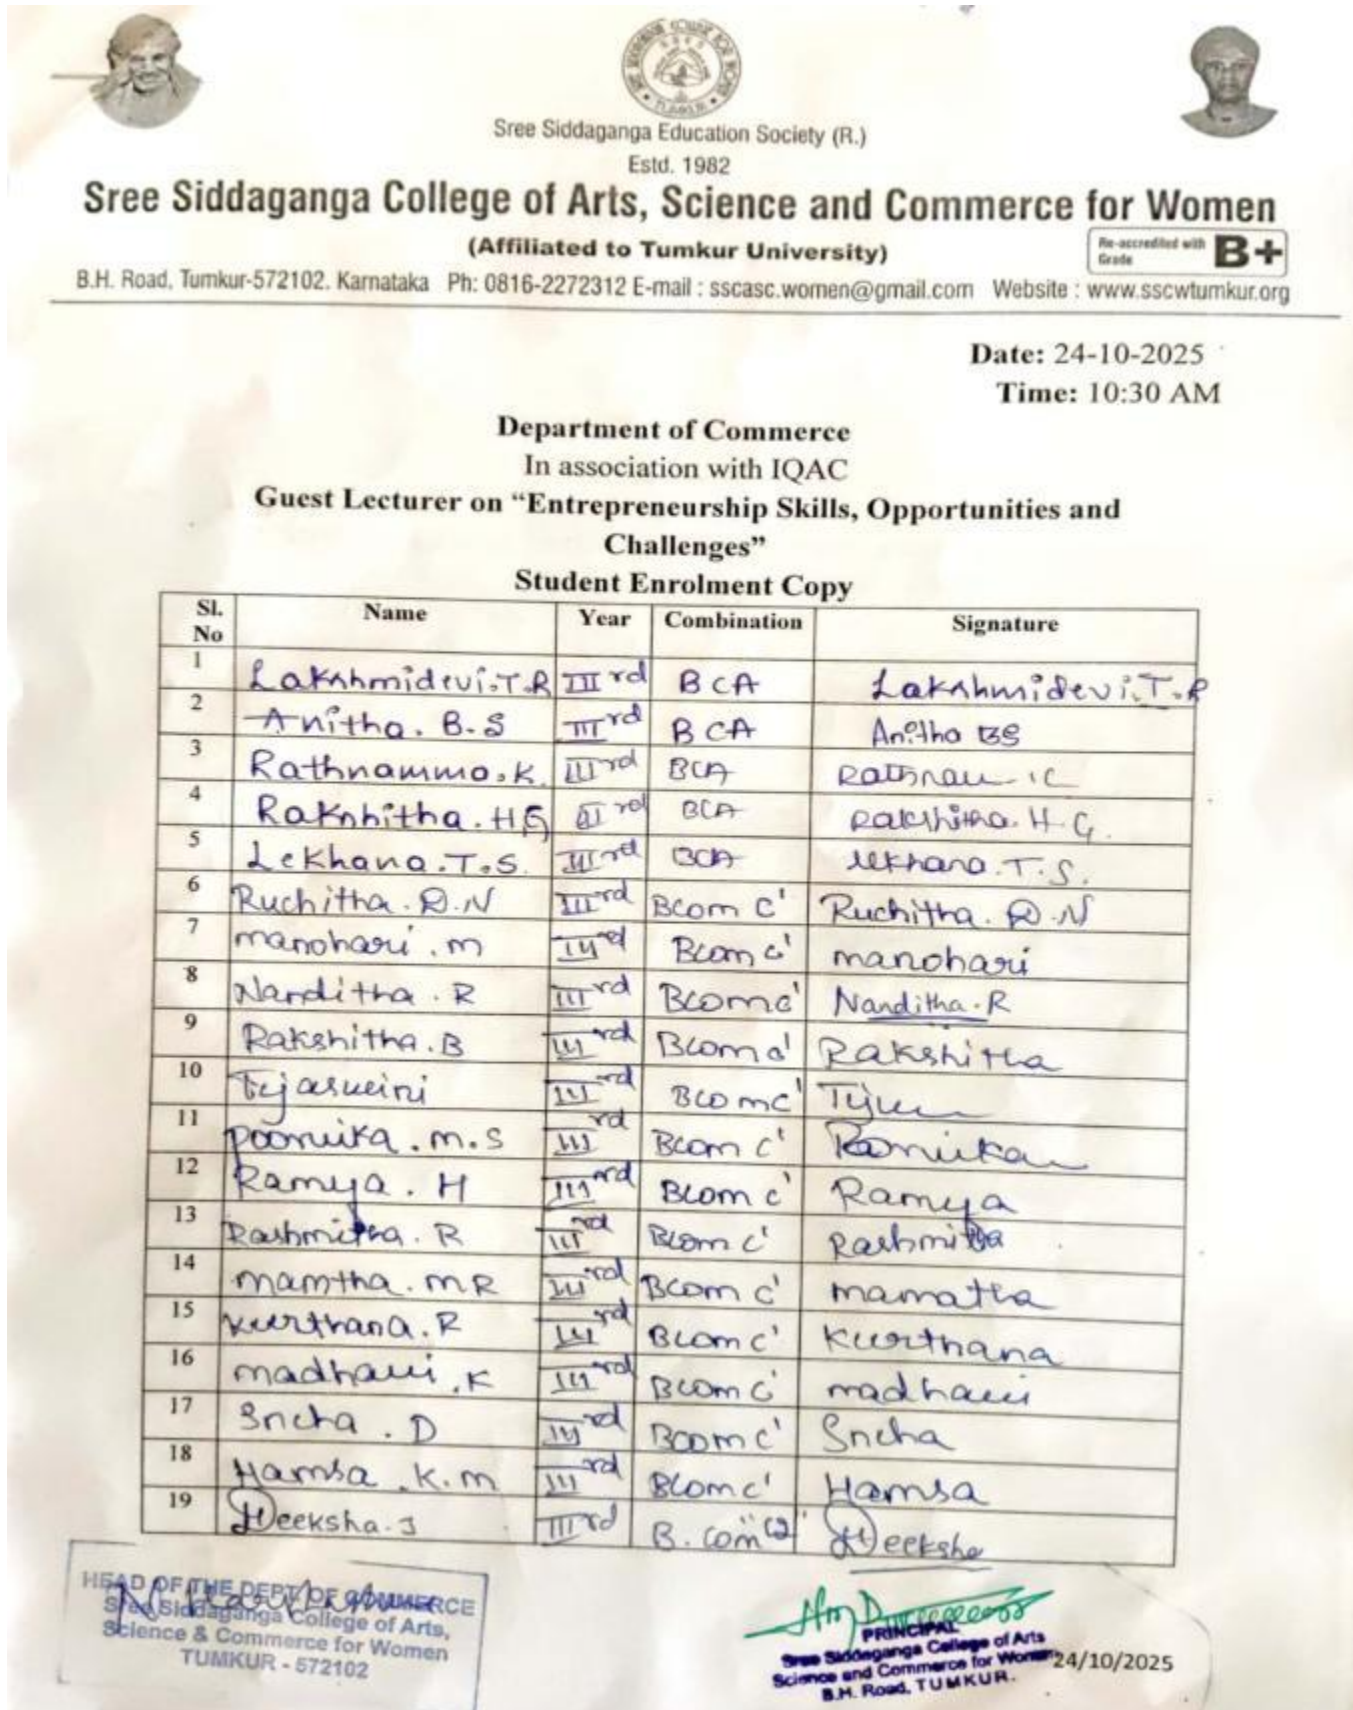 Sree Siddaganga Education Society (R.)
Estd. 1982
Sree Siddaganga College of Arts, Science and Commerce for Women
(Affiliated to Tumkur University)
Re-accredited with Grade B+
B.H. Road, Tumkur-572102. Karnataka Ph: 0816-2272312 E-mail : sscasc.women@gmail.com Website : www.sscwtumkur.org
Date: 24-10-2025
Time: 10:30 AM
Department of Commerce
In association with IQAC
Guest Lecturer on “Entrepreneurship Skills, Opportunities and
Challenges”
Student Enrolment Copy
Sl. No Name Year Combination Signature
1 Lakshmidevi.T.R IIIrd BCA Lakshmidevi.T.R
2 Anitha. B.S IIIrd BCA Anitha BS
3 Rathnamma.K. IIIrd BCA
4 Rakshitha.HG IIIrd BCA Rakshitha.H.G.
5 Lekhana.T.S. IIIrd BCA lekhana.T.S.
6 Ruchitha.D.N IIIrd Bcom C' Ruchitha.D.N
7 manohari.m IIIrd Bcom c' manohari
8 Nanditha.R IIIrd Bcom c' Nanditha.R
9 Rakshitha.B IIIrd Bcom c' Rakshitha
10 Tejaswini IIIrd Bcom c'
11 poornvika.m.s IIIrd Bcom c'
12 Ramya.H IIIrd Bcom c' Ramya
13 Rashmitha.R IIIrd Bcom c' Rashmitha
14 mamtha.mR IIIrd Bcom c' mamatha
15 keerthana.R IIIrd Bcom c' keerthana
16 madhavi.K IIIrd Bcom c' madhavi
17 Sneha.D IIIrd Bcom c' Sneha
18 Hamsa.K.m IIIrd Bcom c' Hamsa
19 Deeksha.J IIIrd B.com Deeksha
HEAD OF THE DEPT OF COMMERCE
Sree Siddaganga College of Arts,
Science & Commerce for Women
TUMKUR - 572102
PRINCIPAL
Sree Siddaganga College of Arts
Science and Commerce for Women
B.H. Road, TUMKUR.
24/10/2025